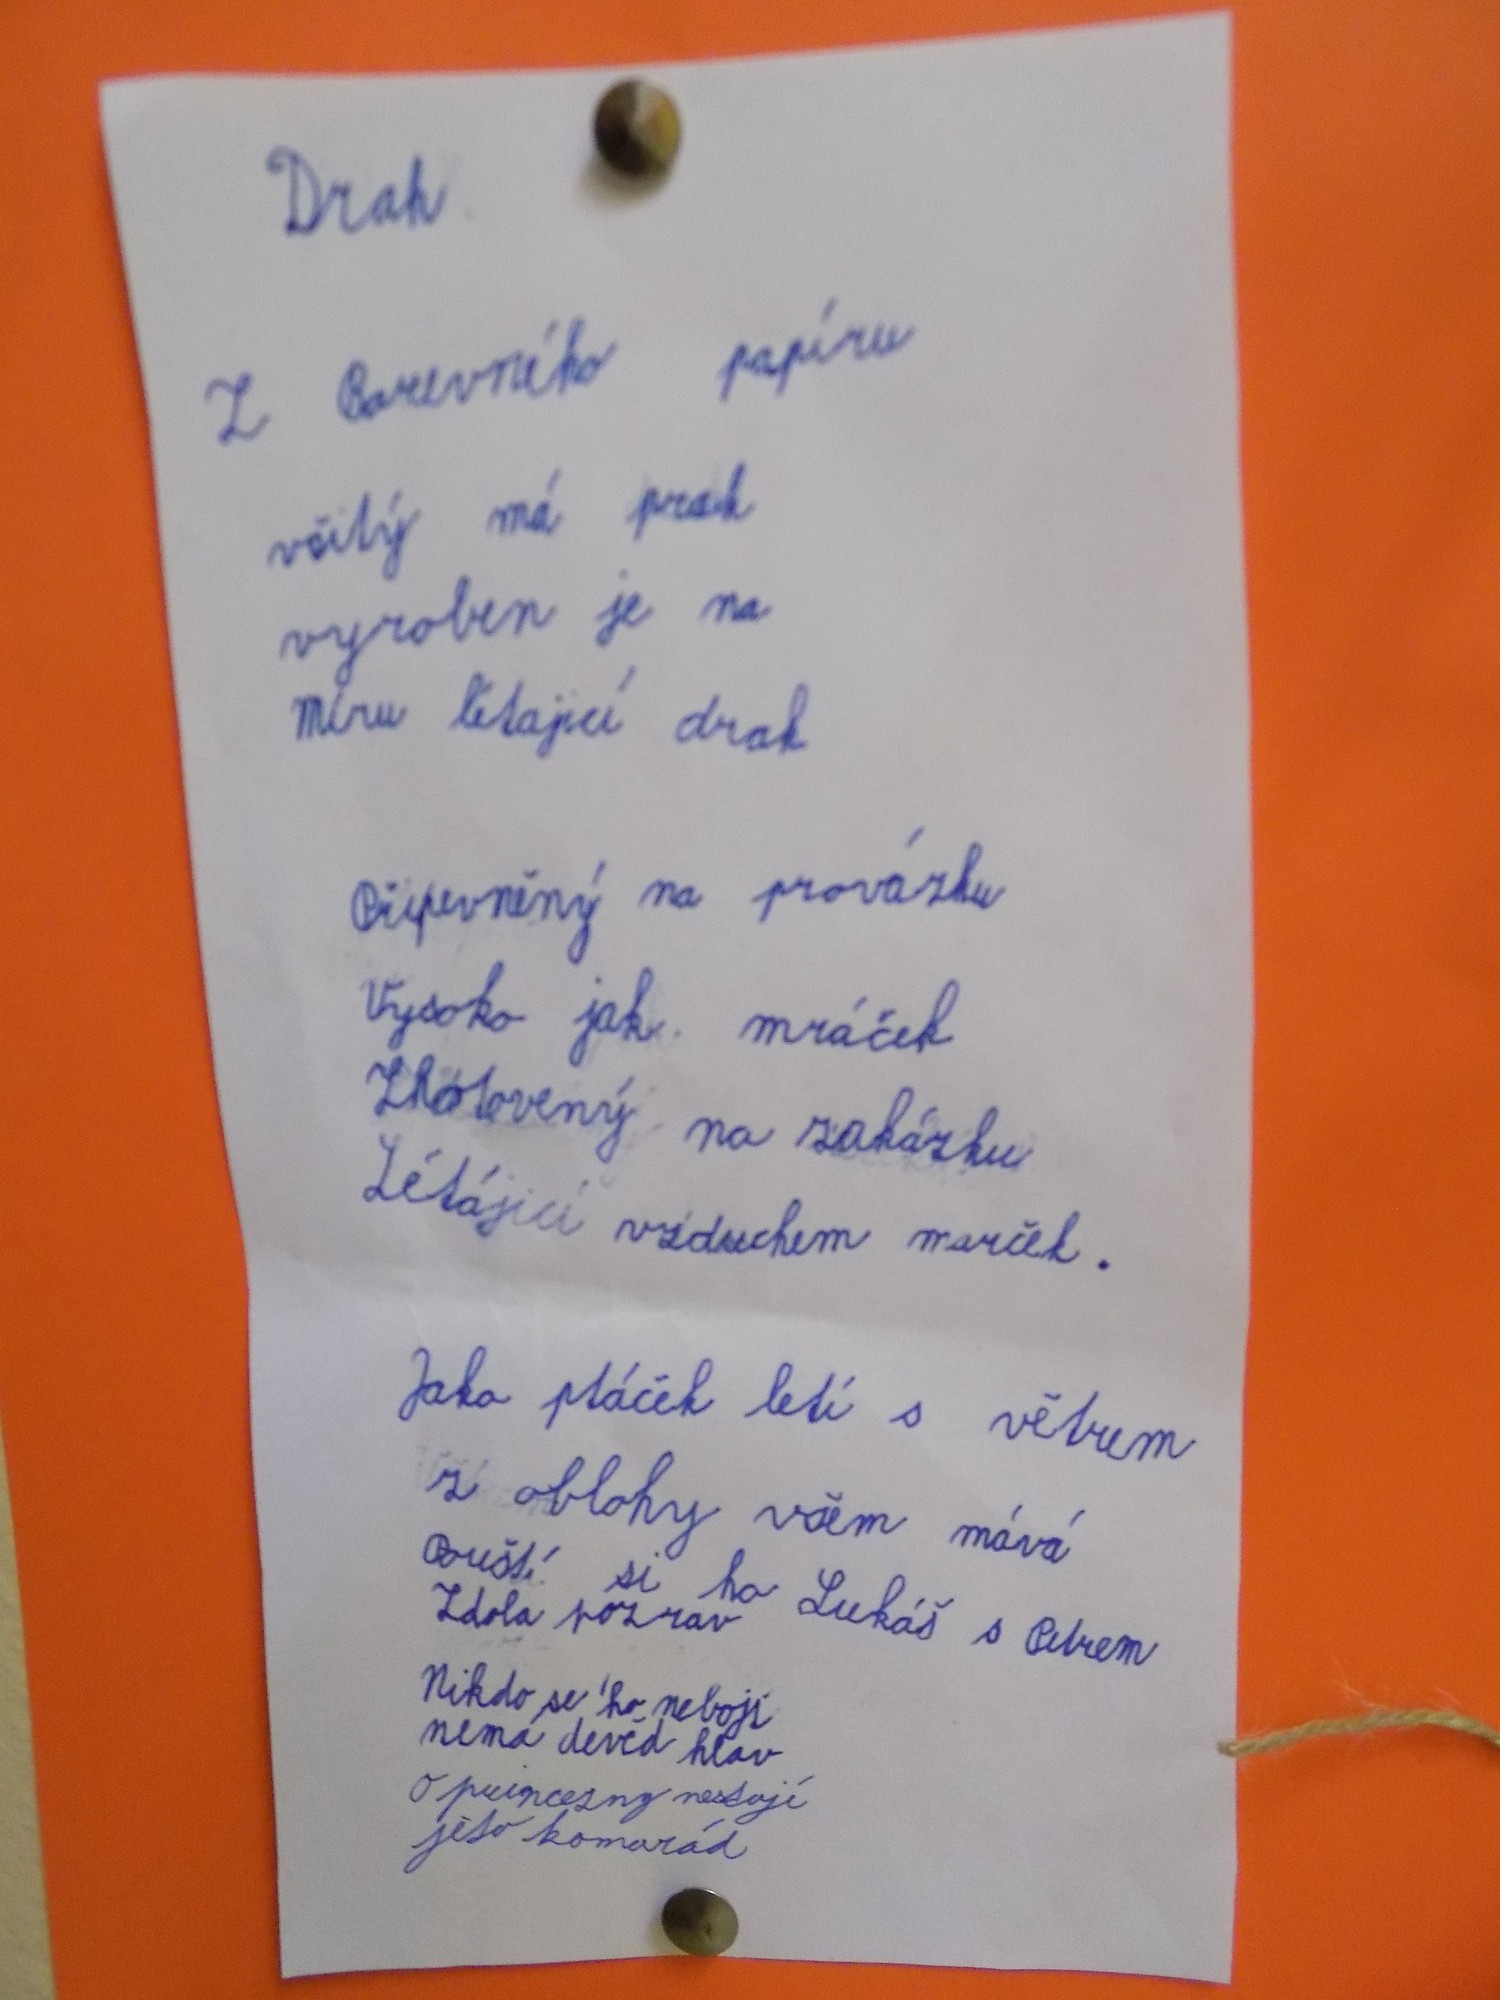 Drak
Z Barevného papíru
všitý má prak
vyroben je na
míru létajicí drak
Připevněný na provázku
Vysoko jak mráček
Zhotovený na zakázku
Létájicí vzduchem marček.
Jako ptáček letí s větrem
z oblohy všem mává
Pouští si ho Lukáš s Petrem
Zdola pozrav
Nikdo se ho nebojí
nemá devěd hlav
o princezny nestojí
jeto komarád